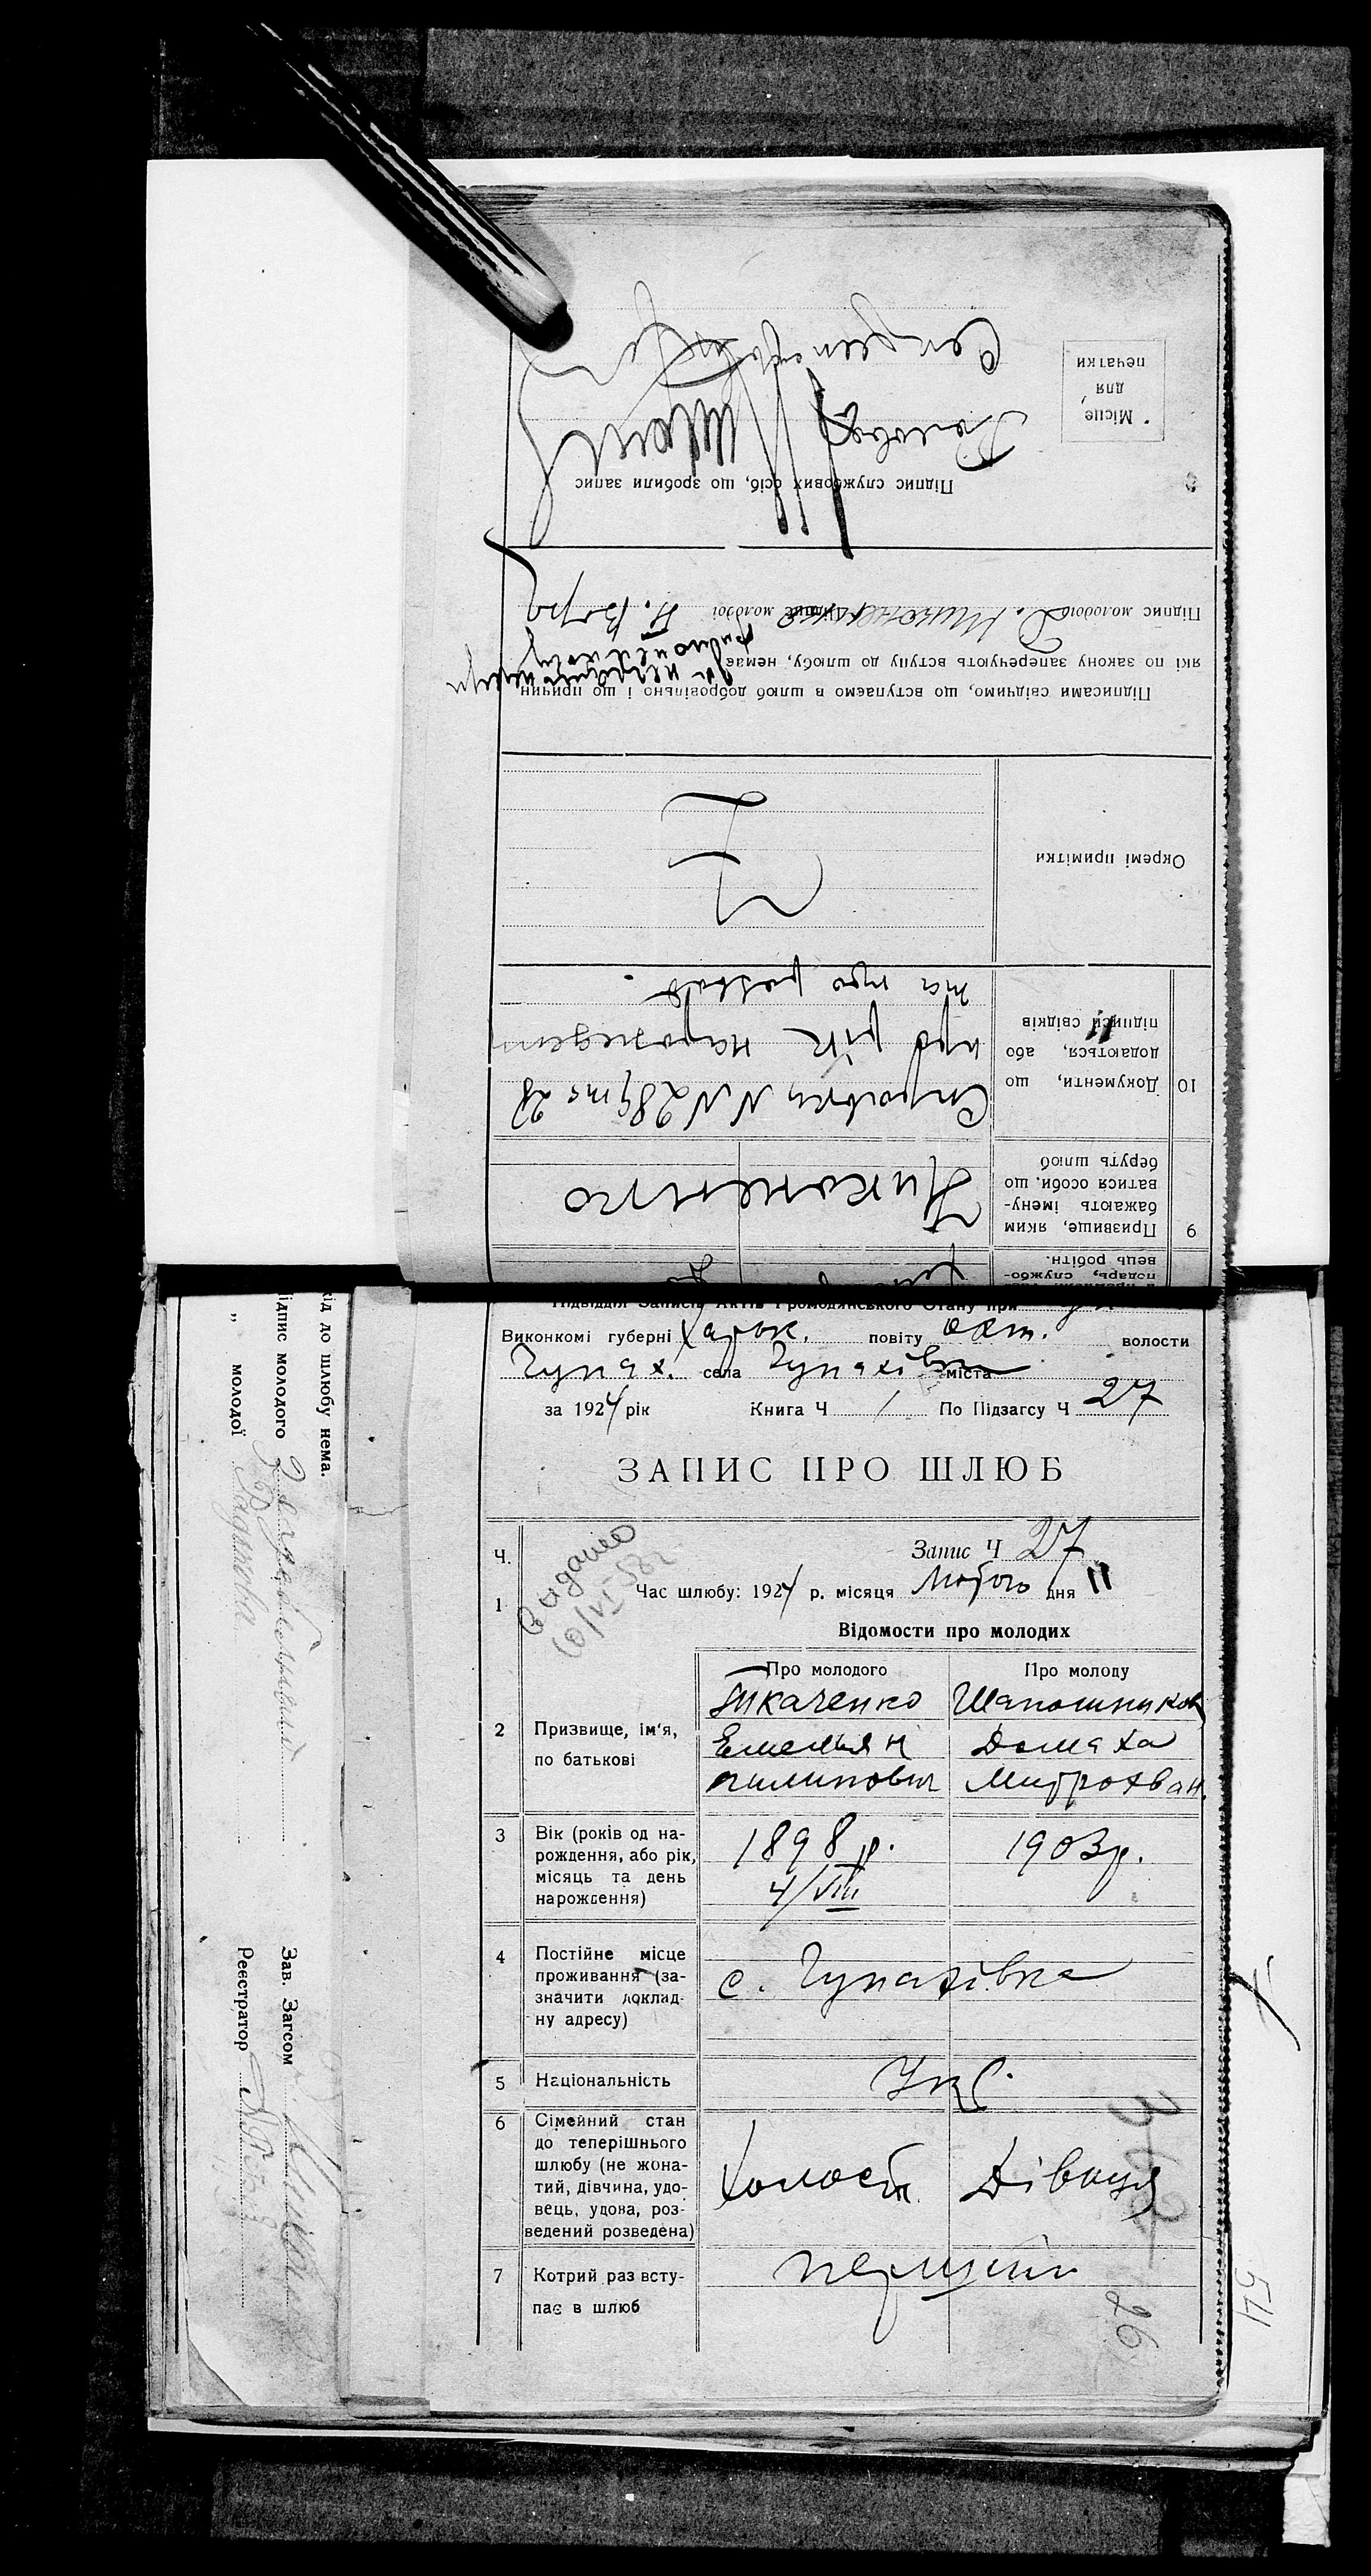 Виконкомі губерні Харьк. повіту Охт. волости
Чупах. села Чупахівка міста
за 1924 рік Книга Ч 1 По Підзагсу Ч 27
ЗАПИС ПРО ШЛЮБ
Запис Ч 27
Ч.
1 Час шлюбу: 1924 р. місяця Лютого дня 11
Видано
Відомости про молодих
Про молодого Про молоду
2 Призвище, ім'я, по батькові
Ткаченко Шапошников
Емельян Домаха
Пилипович Митрохван.
3 Вік (років од нарождення, або рік, місяць та день нарождення)
1898 р. 1903 р.
4/VIII
4 Постійне місце проживання (зазначити докладну адресу)
с. Чупахівка
5 Національність Укр.
6 Сімейний стан до теперішнього шлюбу (не жонатий, дівчина, удовець, удова, розведений розведена)
холост Дівиця
7 Котрий раз вступає в шлюб
перший
26
54
подарь, службовець робітн.
9 Призвище, яким бажають іменуватися особи, що беруть шлюб
Никоненко
10 Документи, що додаються, або підписи свідків
Справки NN 289 та 28
про рік народжен
та про розвод.
Окремі примітки
Підписами свідчимо, що вступаємо в шлюб добровільно і що причин,
які по закону заперечують вступу до шлюбу, немає
Підпис молодого молодої
Підпис службових осіб, що зробили запис
Голова
Секретарь
Місце
для
печатки
хід до шлюбу нема.
ідпис молодого
„ молодої
Зав. Загсом
Реєстратор